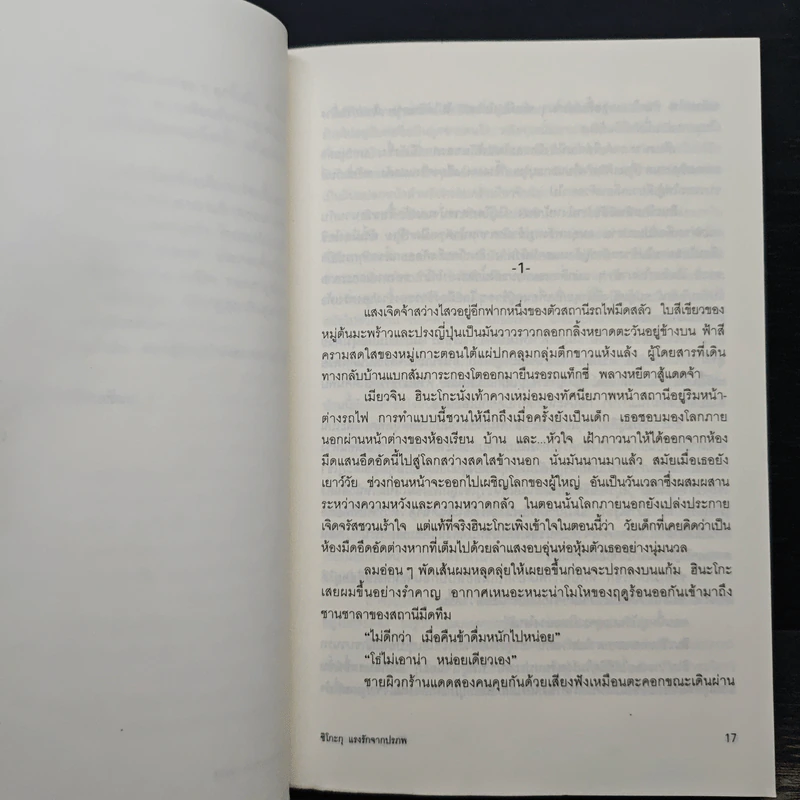 -1-
แสงเจิดจ้าสว่างไสวอยู่อีกฟากหนึ่งของตัวสถานีรถไฟมืดสลัว ใบสีเขียวของ
หมู่ต้นมะพร้าวและปรงญี่ปุ่นเป็นมันวาวราวกลอกกลิ้งหยาดตะวันอยู่ข้างบน ฟ้าสี
ครามสดใสของหมู่เกาะตอนใต้แผ่ปกคลุมกลุ่มตึกขาวแห้งแล้ง ผู้โดยสารที่เดิน
ทางกลับบ้านแบกสัมภาระกองโตออกมายืนรอรถแท็กซี่ พลางหยีตาสู้แดดจ้า
เมียวจิน ฮินะโกะนั่งเท้าคางเหม่อมองทัศนียภาพหน้าสถานีอยู่ริมหน้า-
ต่างรถไฟ การทำแบบนี้ชวนให้นึกถึงเมื่อครั้งยังเป็นเด็ก เธอชอบมองโลกภาย
นอกผ่านหน้าต่างของห้องเรียน บ้าน และ...หัวใจ เฝ้าภาวนาให้ได้ออกจากห้อง
มืดแสนอึดอัดนี้ไปสู่โลกสว่างสดใสข้างนอก นั่นมันนานมาแล้ว สมัยเมื่อเธอยัง
เยาว์วัย ช่วงก่อนหน้าจะออกไปเผชิญโลกของผู้ใหญ่ อันเป็นวันเวลาซึ่งผสมผสาน
ระหว่างความหวังและความหวาดกลัว ในตอนนั้นโลกภายนอกยังเปล่งประกาย
เจิดจรัสชวนเร้าใจ แต่แท้ที่จริงฮินะโกะเพิ่งเข้าใจในตอนนี้ว่า วัยเด็กที่เคยคิดว่าเป็น
ห้องมืดอึดอัดต่างหากที่เต็มไปด้วยลำแสงอบอุ่นห่อหุ้มตัวเธออย่างนุ่มนวล
ลมอ่อน ๆ พัดเส้นผมหลุดลุ่ยให้เผยอขึ้นก่อนจะปรกลงบนแก้ม ฮินะโกะ
เสยผมขึ้นอย่างรำคาญ อากาศเหนอะหนะน่าโมโหของฤดูร้อนออกันเข้ามาถึง
ชานชาลาของสถานีมืดทึม
“ไม่ดีกว่า เมื่อคืนข้าดื่มหนักไปหน่อย”
“โธ่ไม่เอาน่า หน่อยเดียวเอง”
ชายผิวกร้านแดดสองคนคุยกันด้วยเสียงฟังเหมือนตะคอกขณะเดินผ่าน
ชิโกะกุ แรงรักจากปรภพ 17